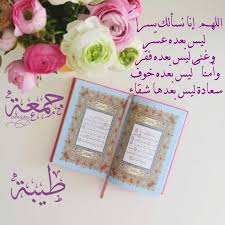 اللهم إنا نسألك يسرا
ليس بعده عسر
وغنى ليس بعده فقر
وأمنا ليس بعده خوف
سعادة ليس بعدها شقاء
جمعة
طيبة